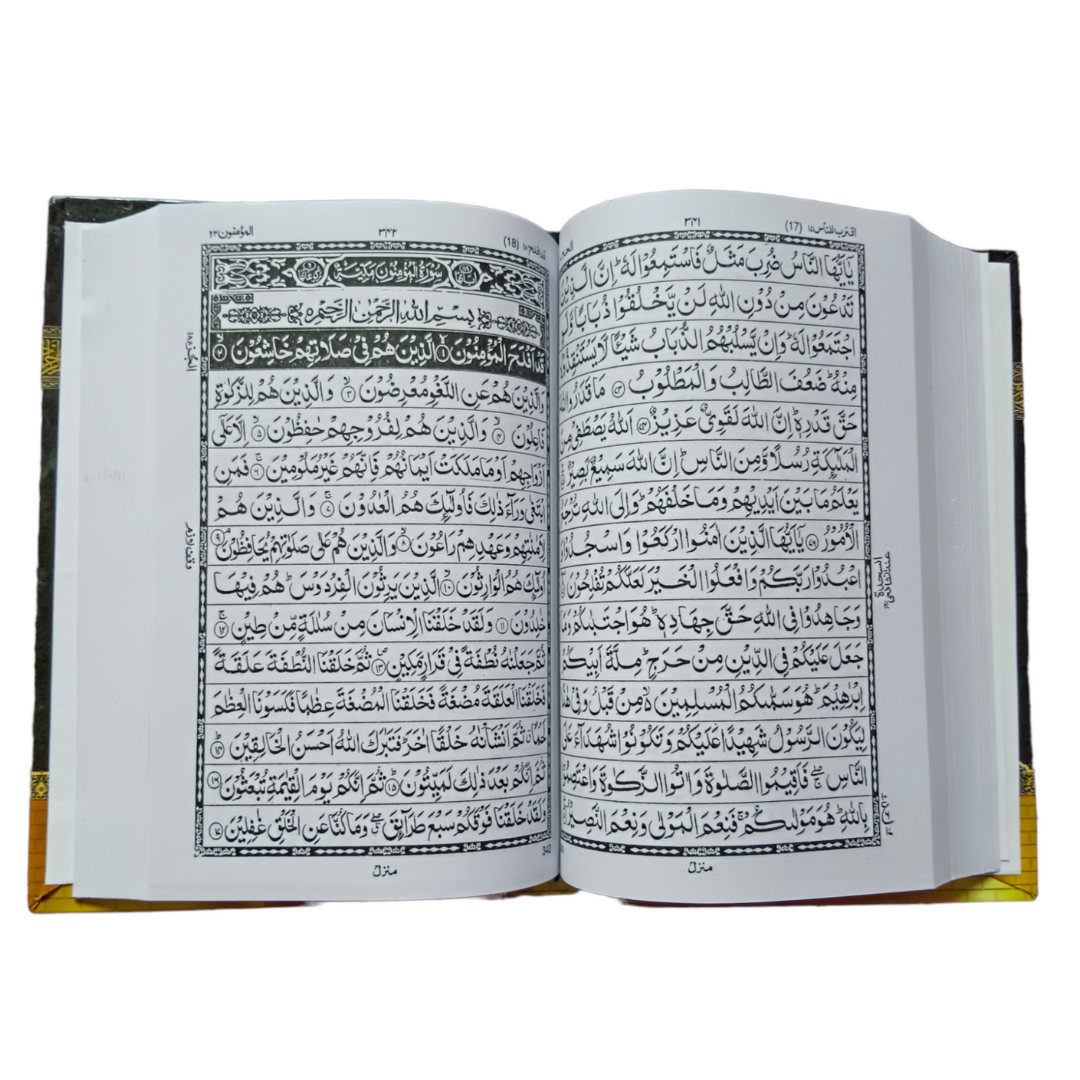 اقترب للناس ١٧ (17)
٣٤١
يٰٓاَيُّهَا النَّاسُ ضُرِبَ مَثَلٌ فَاسْتَمِعُوْا لَهٗ ؕ اِنَّ الَّذِيْنَ
تَدْعُوْنَ مِنْ دُوْنِ اللّٰهِ لَنْ يَّخْلُقُوْا ذُبَابًا وَّلَوِ
اجْتَمَعُوْا لَهٗ ؕ وَاِنْ يَّسْلُبْهُمُ الذُّبَابُ شَيْـًٔا لَّا يَسْتَنْقِذُوْهُ
مِنْهُ ؕ ضَعُفَ الطَّالِبُ وَالْمَطْلُوْبُ ۝۷۳ مَا قَدَرُوا اللّٰهَ
حَقَّ قَدْرِهٖ ؕ اِنَّ اللّٰهَ لَقَوِيٌّ عَزِيْزٌ ۝۷۴ اَللّٰهُ يَصْطَفِيْ مِنَ
الْمَلٰٓئِكَةِ رُسُلًا وَّمِنَ النَّاسِ ؕ اِنَّ اللّٰهَ سَمِيْعٌۢ بَصِيْرٌ
يَعْلَمُ مَا بَيْنَ اَيْدِيْهِمْ وَمَا خَلْفَهُمْ ؕ وَاِلَى اللّٰهِ تُرْجَعُ
الْاُمُوْرُ ۝۷۶ يٰٓاَيُّهَا الَّذِيْنَ اٰمَنُوا ارْكَعُوْا وَاسْجُدُوْا
اعْبُدُوْا رَبَّكُمْ وَافْعَلُوا الْخَيْرَ لَعَلَّكُمْ تُفْلِحُوْنَ
وَجَاهِدُوْا فِي اللّٰهِ حَقَّ جِهَادِهٖ ؕ هُوَ اجْتَبٰىكُمْ وَمَا
جَعَلَ عَلَيْكُمْ فِي الدِّيْنِ مِنْ حَرَجٍ ؕ مِلَّةَ اَبِيْكُمْ
اِبْرٰهِيْمَ ؕ هُوَ سَمّٰىكُمُ الْمُسْلِمِيْنَ ۬ۙ مِنْ قَبْلُ وَفِيْ هٰذَا
لِيَكُوْنَ الرَّسُوْلُ شَهِيْدًا عَلَيْكُمْ وَتَكُوْنُوْا شُهَدَآءَ عَلَى
النَّاسِ ۖۚ فَاَقِيْمُوا الصَّلٰوةَ وَاٰتُوا الزَّكٰوةَ وَاعْتَصِمُوْا
بِاللّٰهِ ؕ هُوَ مَوْلٰىكُمْ ۚ فَنِعْمَ الْمَوْلٰى وَنِعْمَ النَّصِيْرُ
السجدة
عند الشافعي
منزل
المؤمنون ٢٣
٣٤٢
(18)
سُوْرَةُ الْمُؤْمِنُوْنَ مَكِّيَّةٌ
بِسْمِ اللّٰهِ الرَّحْمٰنِ الرَّحِيْمِ
قَدْ اَفْلَحَ الْمُؤْمِنُوْنَ ۝۱ الَّذِيْنَ هُمْ فِيْ صَلَاتِهِمْ خَاشِعُوْنَ ۝۲
وَالَّذِيْنَ هُمْ عَنِ اللَّغْوِ مُعْرِضُوْنَ ۝۳ وَالَّذِيْنَ هُمْ لِلزَّكٰوةِ
فَاعِلُوْنَ ۝۴ وَالَّذِيْنَ هُمْ لِفُرُوْجِهِمْ حٰفِظُوْنَ ۝۵ اِلَّا عَلٰٓى
اَزْوَاجِهِمْ اَوْ مَا مَلَكَتْ اَيْمَانُهُمْ فَاِنَّهُمْ غَيْرُ مَلُوْمِيْنَ ۝۶ فَمَنِ
ابْتَغٰى وَرَآءَ ذٰلِكَ فَاُولٰٓئِكَ هُمُ الْعٰدُوْنَ ۝۷ وَالَّذِيْنَ هُمْ
لِاَمٰنٰتِهِمْ وَعَهْدِهِمْ رَاعُوْنَ ۝۸ وَالَّذِيْنَ هُمْ عَلٰى صَلَوٰتِهِمْ يُحَافِظُوْنَ ۝۹
اُولٰٓئِكَ هُمُ الْوَارِثُوْنَ ۝۱۰ الَّذِيْنَ يَرِثُوْنَ الْفِرْدَوْسَ ؕ هُمْ فِيْهَا
خٰلِدُوْنَ ۝۱۱ وَلَقَدْ خَلَقْنَا الْاِنْسَانَ مِنْ سُلٰلَةٍ مِّنْ طِيْنٍ ۝۱۲
ثُمَّ جَعَلْنٰهُ نُطْفَةً فِيْ قَرَارٍ مَّكِيْنٍ ۝۱۳ ثُمَّ خَلَقْنَا النُّطْفَةَ عَلَقَةً
فَخَلَقْنَا الْعَلَقَةَ مُضْغَةً فَخَلَقْنَا الْمُضْغَةَ عِظٰمًا فَكَسَوْنَا الْعِظٰمَ
لَحْمًا ۗ ثُمَّ اَنْشَاْنٰهُ خَلْقًا اٰخَرَ ؕ فَتَبٰرَكَ اللّٰهُ اَحْسَنُ الْخٰلِقِيْنَ ۝۱۴
ثُمَّ اِنَّكُمْ بَعْدَ ذٰلِكَ لَمَيِّتُوْنَ ۝۱۵ ثُمَّ اِنَّكُمْ يَوْمَ الْقِيٰمَةِ تُبْعَثُوْنَ ۝۱۶
وَلَقَدْ خَلَقْنَا فَوْقَكُمْ سَبْعَ طَرَآئِقَ ۖ وَمَا كُنَّا عَنِ الْخَلْقِ غٰفِلِيْنَ ۝۱۷
منزل